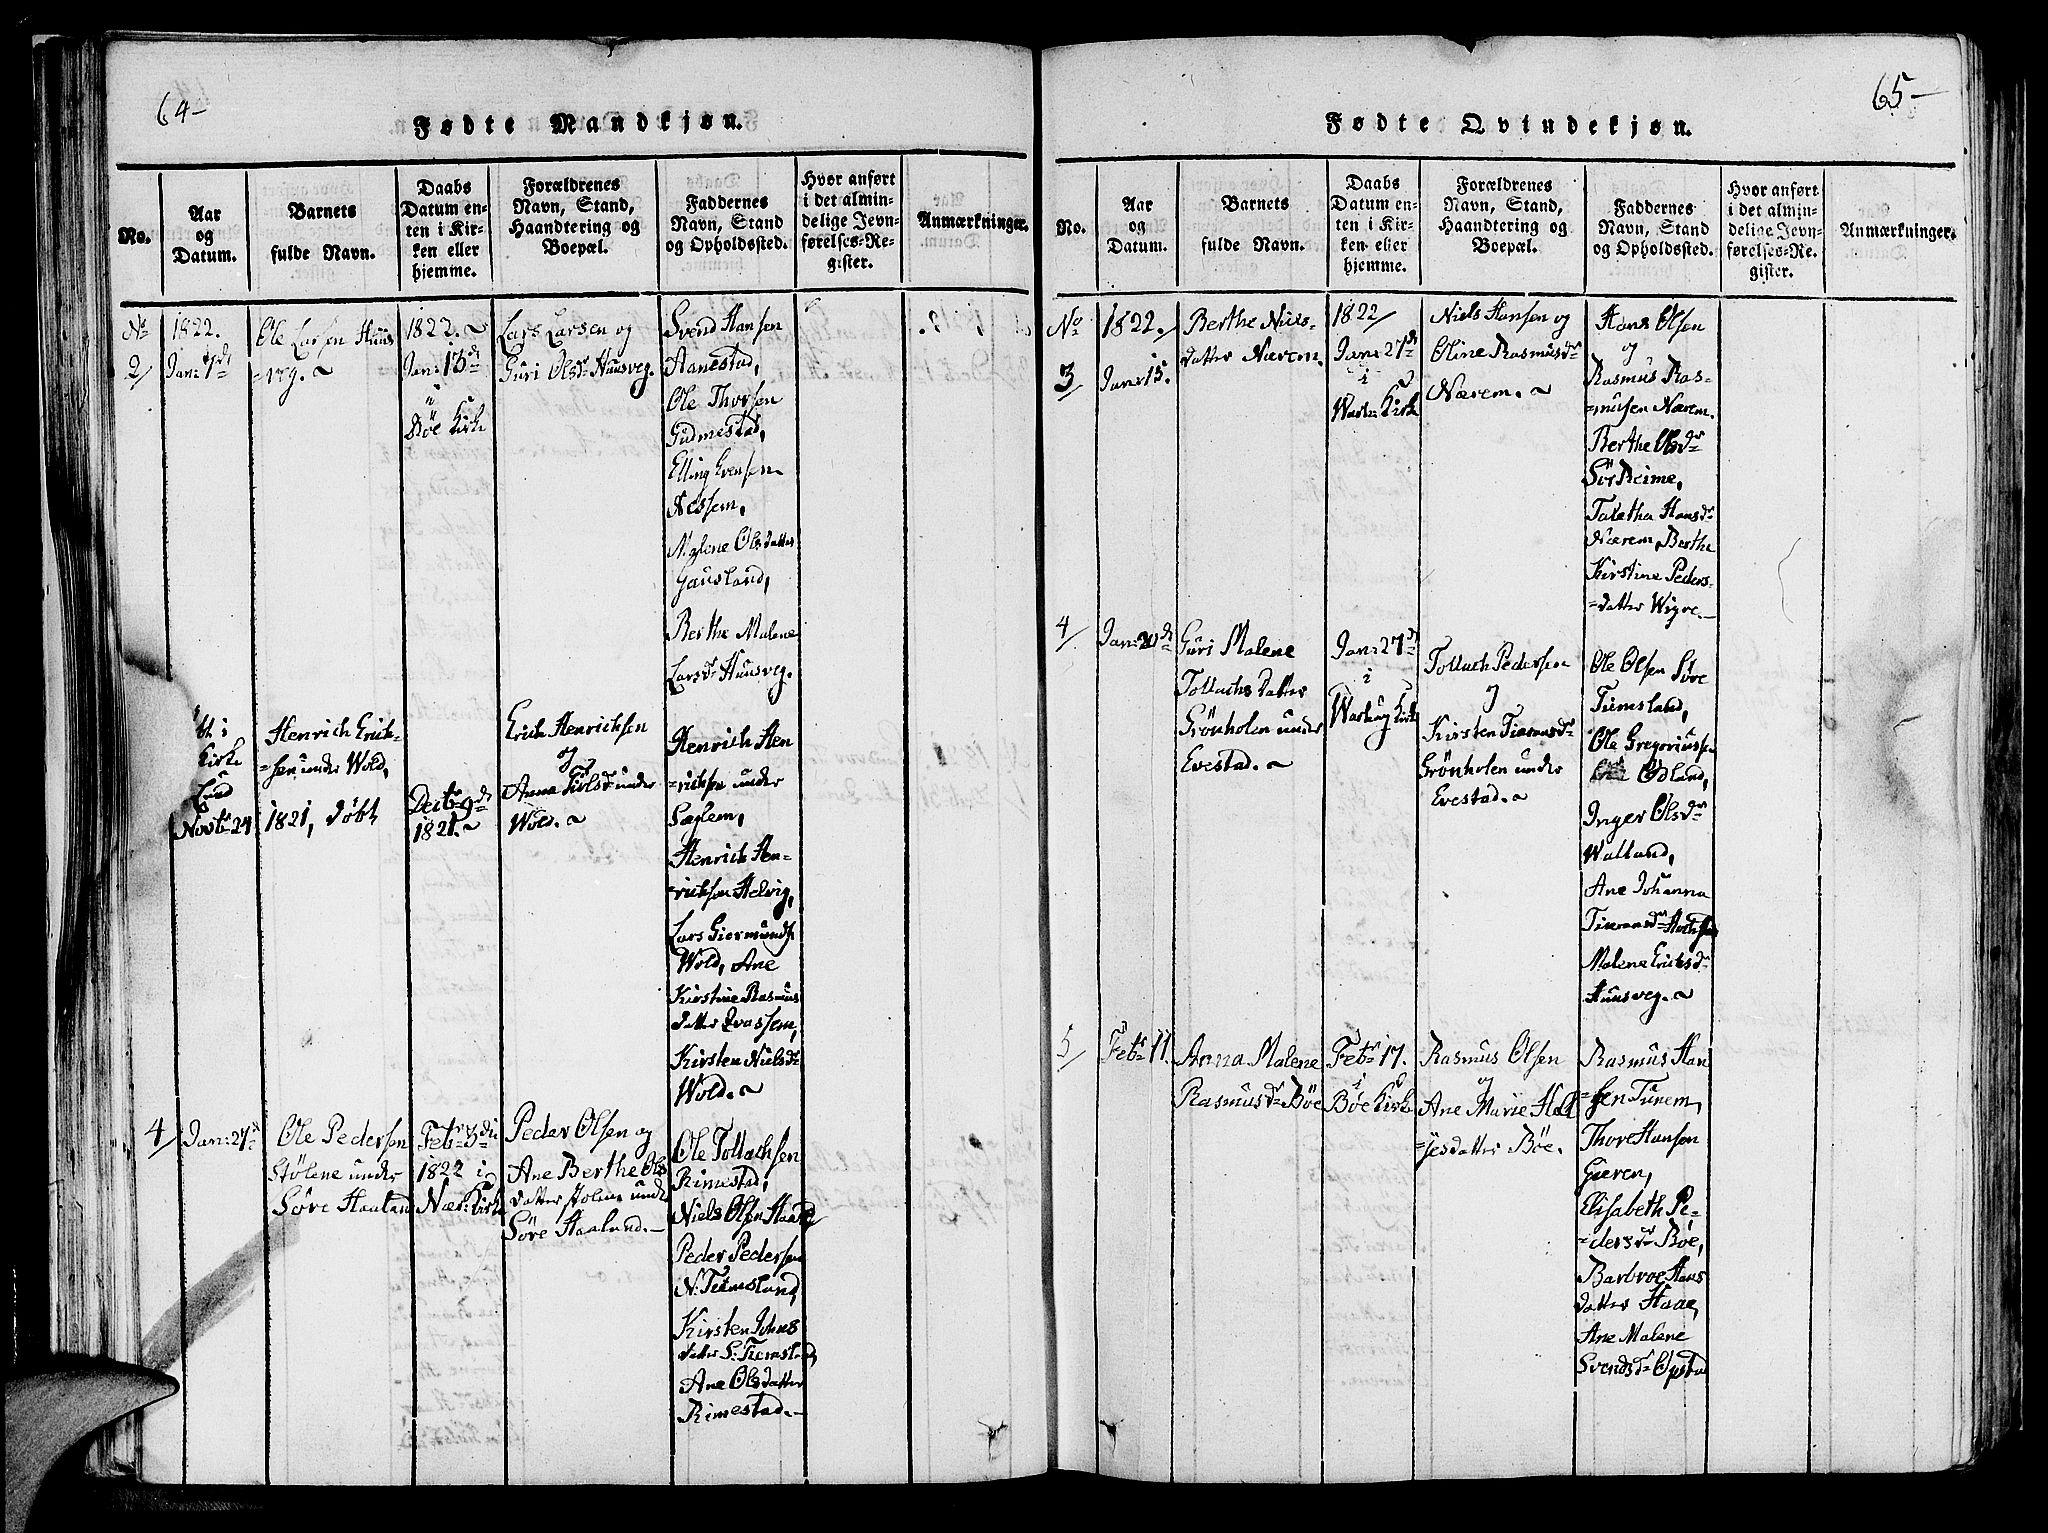 64-
Fødte Mandkjøn.
No.
Aar
og
Datum.
Barnets
fulde Navn.
Daabs
Datum en-
ten i Kir-
ken eller
hjemme.
Forældrenes
Navn, Stand,
Haandtering og
Boepæl.
Faddernes
Navn, Stand
og Opholdssted.
Hvor anført
i det almin-
delige Jevn-
førelses-Re-
gister.
Anmærkninger.
No
2/
1822.
Jan: 7de
Ole Larsen Huus
=veg.
1822.
Jan: 13de
i
Böe Kirke
Lars Larsen og
Guri Olsdr Huusveg.
Svend Hansen
Aanestad,
Ole Thorsen
Gudmestad,
Elling Evensen
Nessem,
Malene Olsdatter
Gausland,
Berthe Malene
Larsdr Huusveg.
i
Kirke
Lund
Novbr 24
Henrich Erich-
=sen under Wold,
1821, döbt
Decbr 9de
1821.
Erich Henrichsen
og
Anna under
Wold.
Henrich Hen
=richsen under
Sælem,
Henrich Hen-
=richsen Helvig,
Lars Giermunds
Wold, Ane
Kirstine Rasmus
datter Qvassem,
Kirsten Nielsdr
Wold.
4/
Jan: 27de
Ole Pedersen
Stölene under
Söre Haaland
Febr 3die
1822 i
Nær: Kirke
Peder Olsen og
Ane Berthe Ols
datter stolene unde
Söre Haaland.-
Ole Tollachsen
Rimestad,
Niels Olsen Haarr
Peder Pedersen
N: Tiemsland,
Kirsten Johns
datter S: Tiemsland,
Ane Olsdatter
Rimestad.-
65-
Fødte Qvindekjøn.
No.
Aar
og
Datum.
Barnets
fulde Navn.
Daabs
Datum en-
ten i Kir-
ken eller
hjemme.
Forældrenes
Navn, Stand,
Haandtering og
Boepæl.
Faddernes
Navn, Stand
og Opholdssted.
Hvor anført
i det almin-
delige Jevn-
førelses-Re-
gister.
Anmærkninger.
No
3
1822.
Jan: 15.
Berthe Niels-
datter Nærem.
1822/
Jan: 27de
i
Warh: Kirke
Niels Hansen og
Oline Rasmusdr
Nærem.
Hans Olsen
og
Rasmus Ras-
=musen Nærem.
Berthe Olsdr
Sör Reime,
Taletha Hansdr
Nærem, Berthe
Kirstine Peders-
=datter Wigre.-
4/
Jan: 20de
Guri Malene
Tollachs datter
Grönholen under
Evestad.
Jan: 27de
i
Warhoug Kirke
Tollach Pedersen
og
Kirsten Tiemsdr
Grönholen under
Evestad.
Ole Olsen Söre
Tiemsland,
Ole Gregoriussen
Ödland,
Inger Olsdr
Walland,
Ane Johanna
Malene Erichsdr
Huusveg.
5/
Febr 11.
Anna Malene
Rasmusdr Böe
Febr 17.
i
Böe Kirke
Rasmus Olsen
og
Ane Marie Hel
=jesdatter Böe.
Rasmus Han
=sen Tunem,
Thore Hansen
Gieren,
Elisabeth Pe-
=dersdr Böe,
Barbroe Hans
datter Haae,
Ane Malene
Svendsdr Opstad